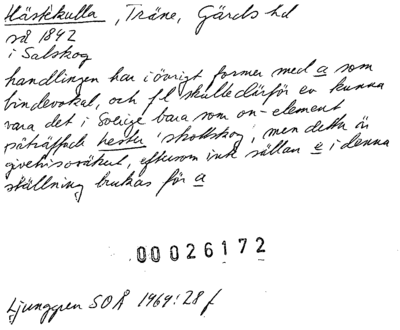 Hästekulla, Träne, Gärds hd
så 1842
i Salskog
handlingen har i övrigt former med a som
bindevokal, och fl skulle därför ev kunna
vara det i Sverige bara som on-element
påträffade hester 'skottskog', men detta är
givetvis osäkert, eftersom inte sällan e i denna
ställning brukas för a
00026172
Ljunggren SOÅ 1969:28 f